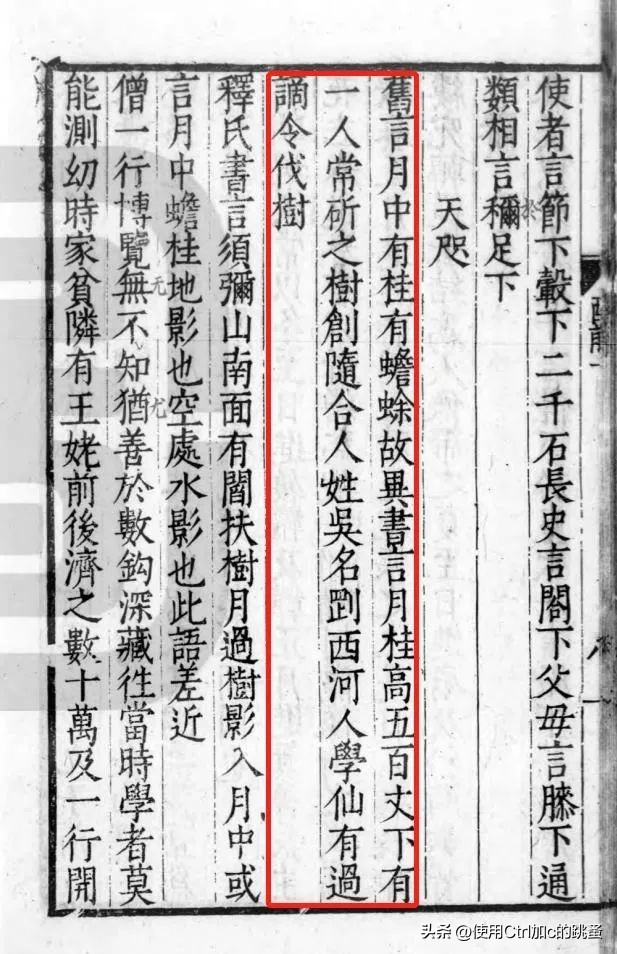 使者言節下轂下二千石長史言閤下父母言膝下通
類相言稱於足下
天咫
舊言月中有桂有蟾蜍故異書言月桂高五百丈下有
一人常斫之樹創隨合人姓吳名剛西河人學仙有過
謫令伐樹
釋氏書言須彌山南面有閻扶樹月過樹影入月中或
言月中蟾桂地影也空處水影也此語差近
僧一行博覽無不知猶善於數鈎深藏往當時學者莫
能測幼時家貧隣有王姥前後濟之數十萬及一行開
无
尤
頭条 @使用Ctrl加c的跳蚤